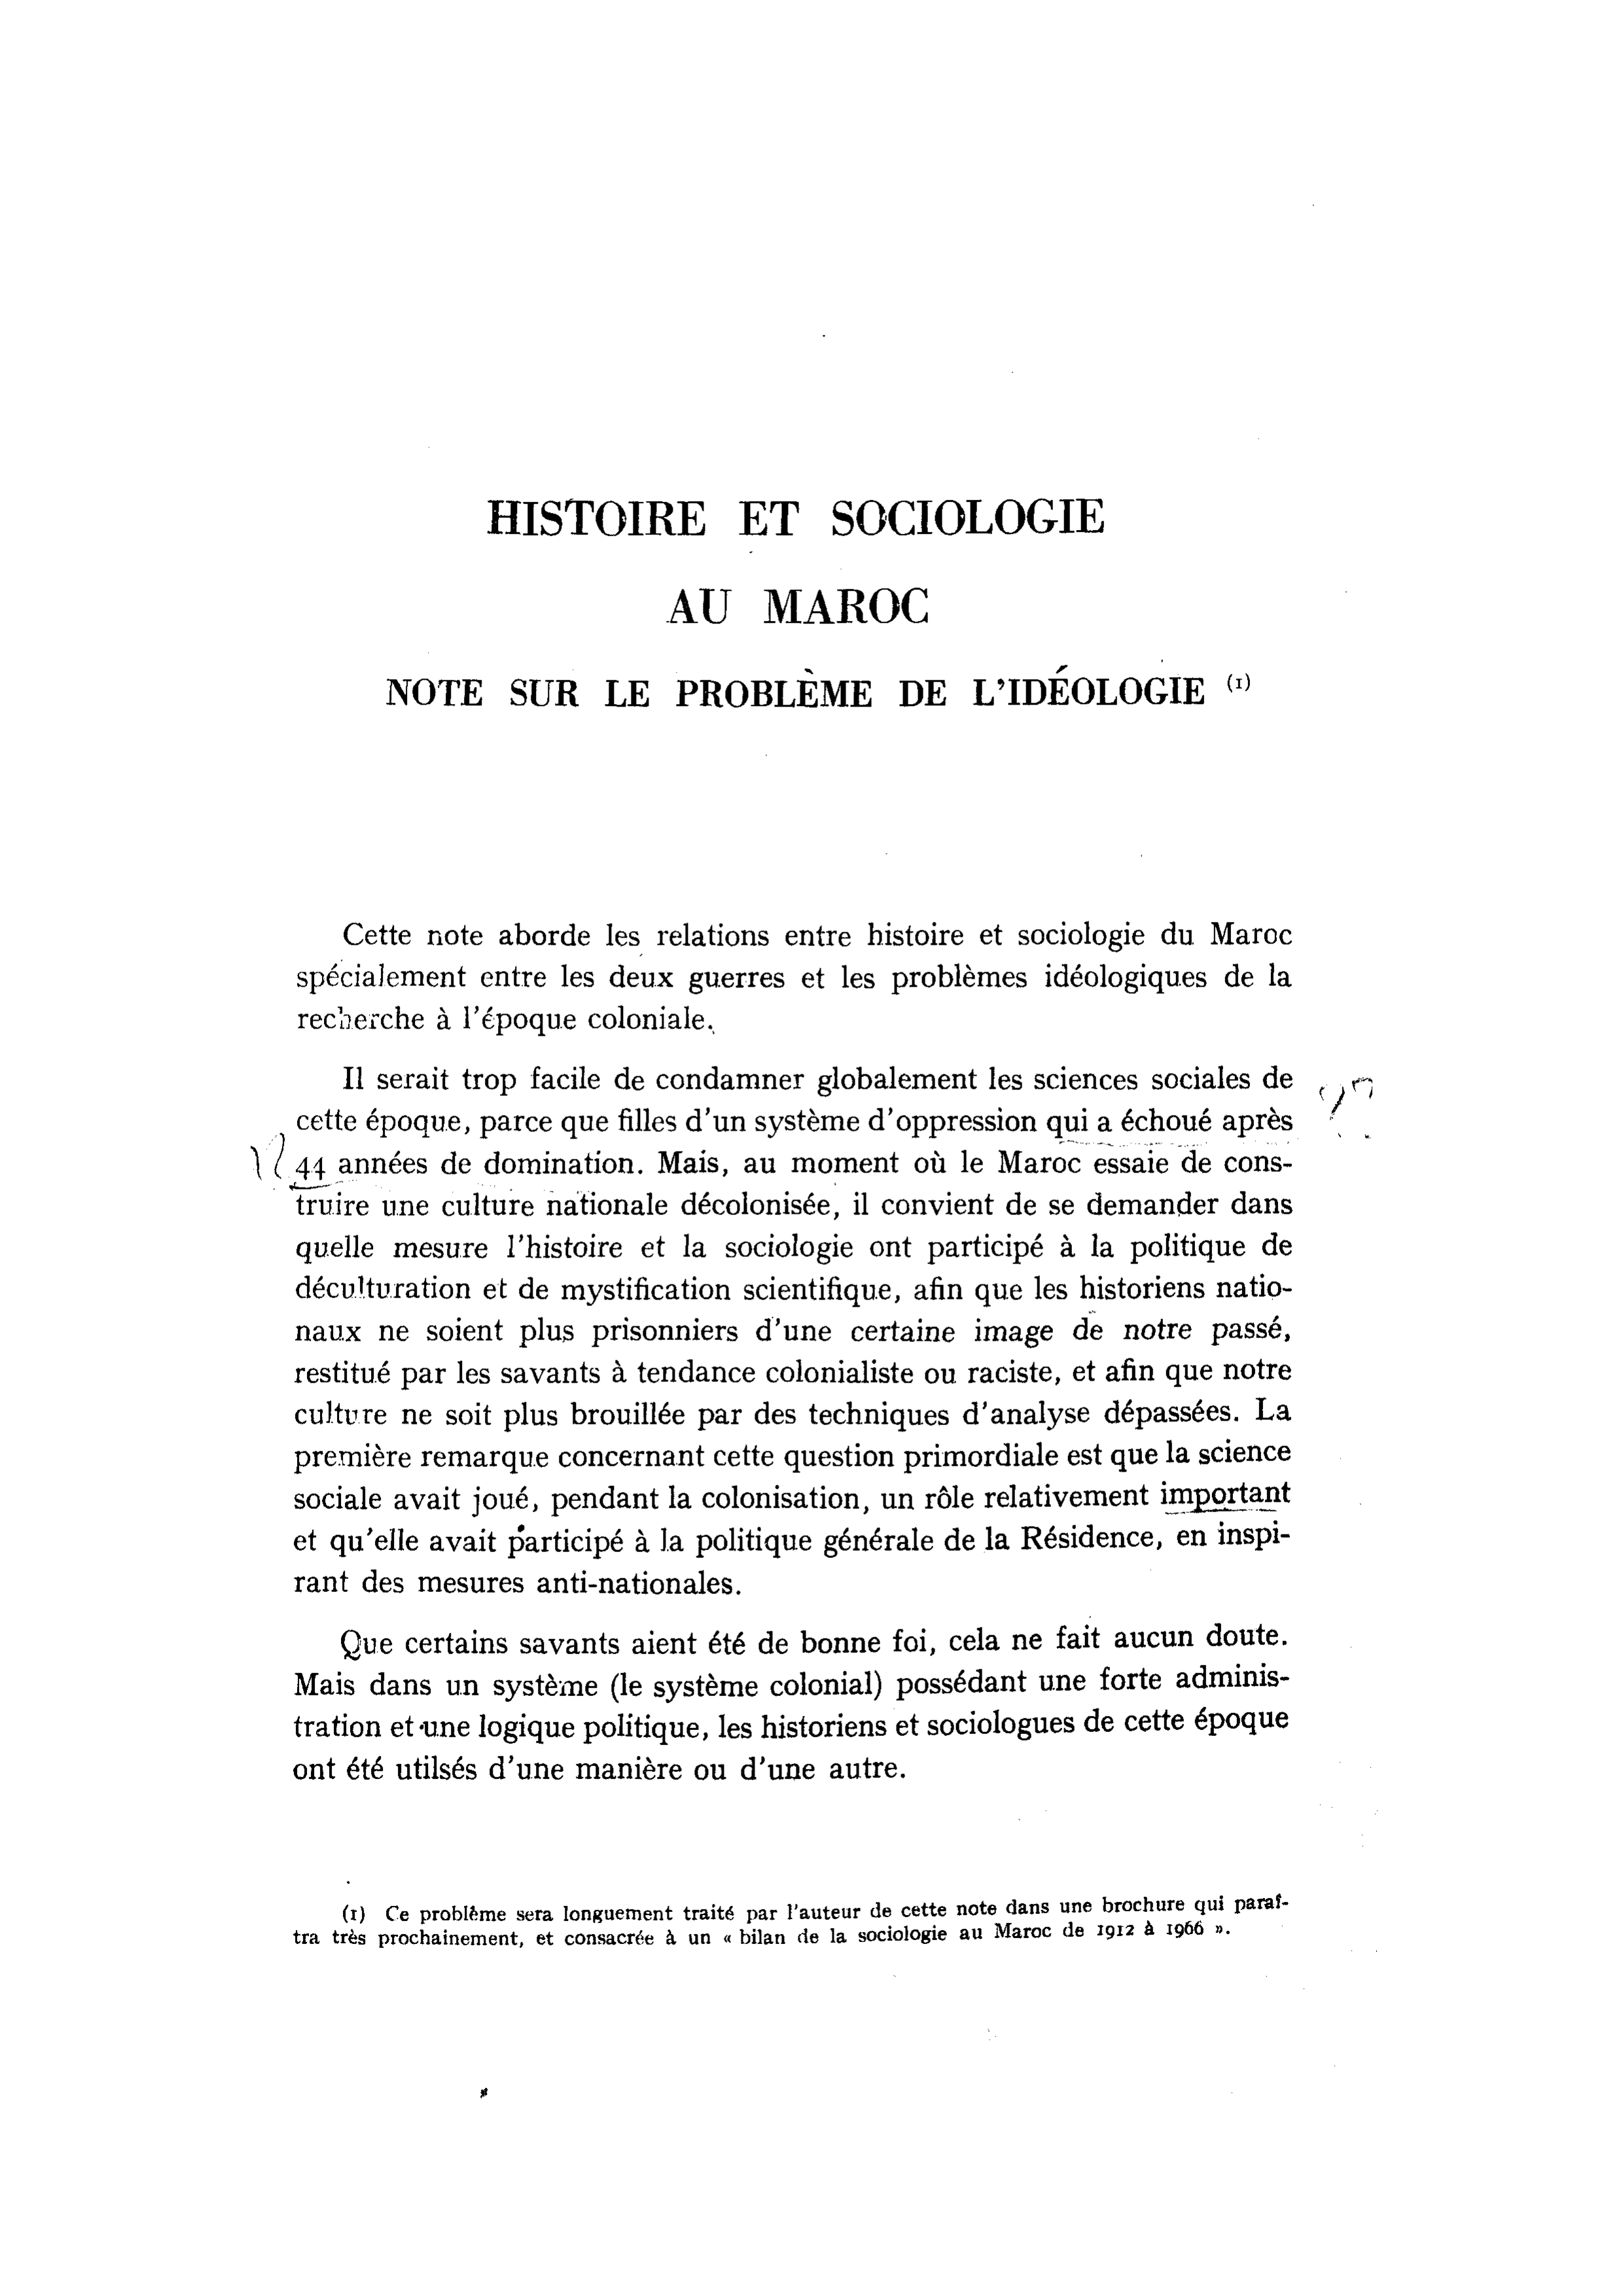 HISTOIRE ET SOCIOLOGIE
AU MAROC
NOTE SUR LE PROBLÈME DE L'IDÉOLOGIE (1)
Cette note aborde les relations entre histoire et sociologie du Maroc
spécialement entre les deux guerres et les problèmes idéologiques de la
recherche à l'époque coloniale.
Il serait trop facile de condamner globalement les sciences sociales de
cette époque, parce que filles d'un système d'oppression qui a échoué après
44 années de domination. Mais, au moment où le Maroc essaie de cons-
truire une culture nationale décolonisée, il convient de se demander dans
quelle mesure l'histoire et la sociologie ont participé à la politique de
déculturation et de mystification scientifique, afin que les historiens natio-
naux ne soient plus prisonniers d'une certaine image de notre passé,
restitué par les savants à tendance colonialiste ou raciste, et afin que notre
culture ne soit plus brouillée par des techniques d'analyse dépassées. La
première remarque concernant cette question primordiale est que la science
sociale avait joué, pendant la colonisation, un rôle relativement important
et qu'elle avait participé à la politique générale de la Résidence, en inspi-
rant des mesures anti-nationales.
Que certains savants aient été de bonne foi, cela ne fait aucun doute.
Mais dans un système (le système colonial) possédant une forte adminis-
tration et une logique politique, les historiens et sociologues de cette époque
ont été utilsés d'une manière ou d'une autre.
(1) Ce problème sera longuement traité par l'auteur de cette note dans une brochure qui paraî-
tra très prochainement, et consacrée à un « bilan de la sociologie au Maroc de 1912 à 1966 ».